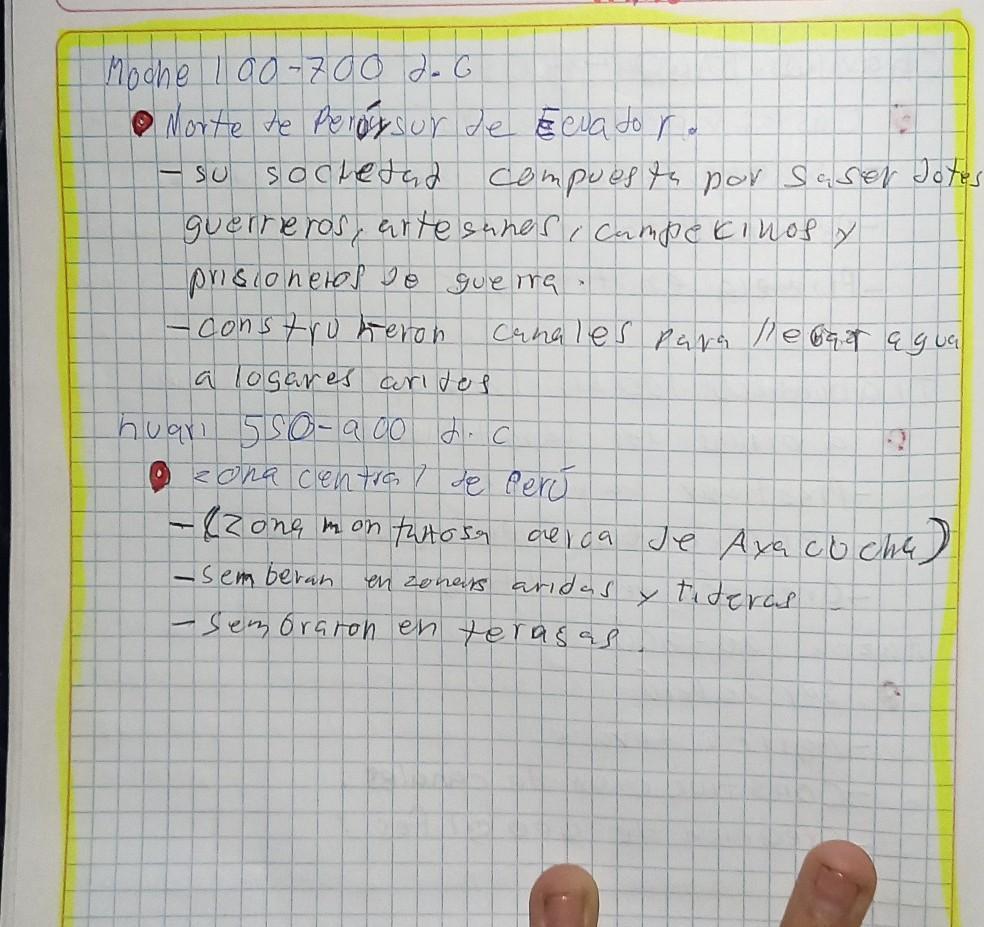 Moche 100-700 d.C
Norte de Perú y sur de Ecuador.
- su sociedad compuesta por saserdotes
guerreros, artesanos, campecinos y
prisioneros de guerra.
- construlleron canales para llevar agua
a logares aridos
huari 550-900 d.C
zona central de Perú
- (zona montañosa cerca de Ayacucho)
- semberan en zonas aridas y
- sembraron en terasas.